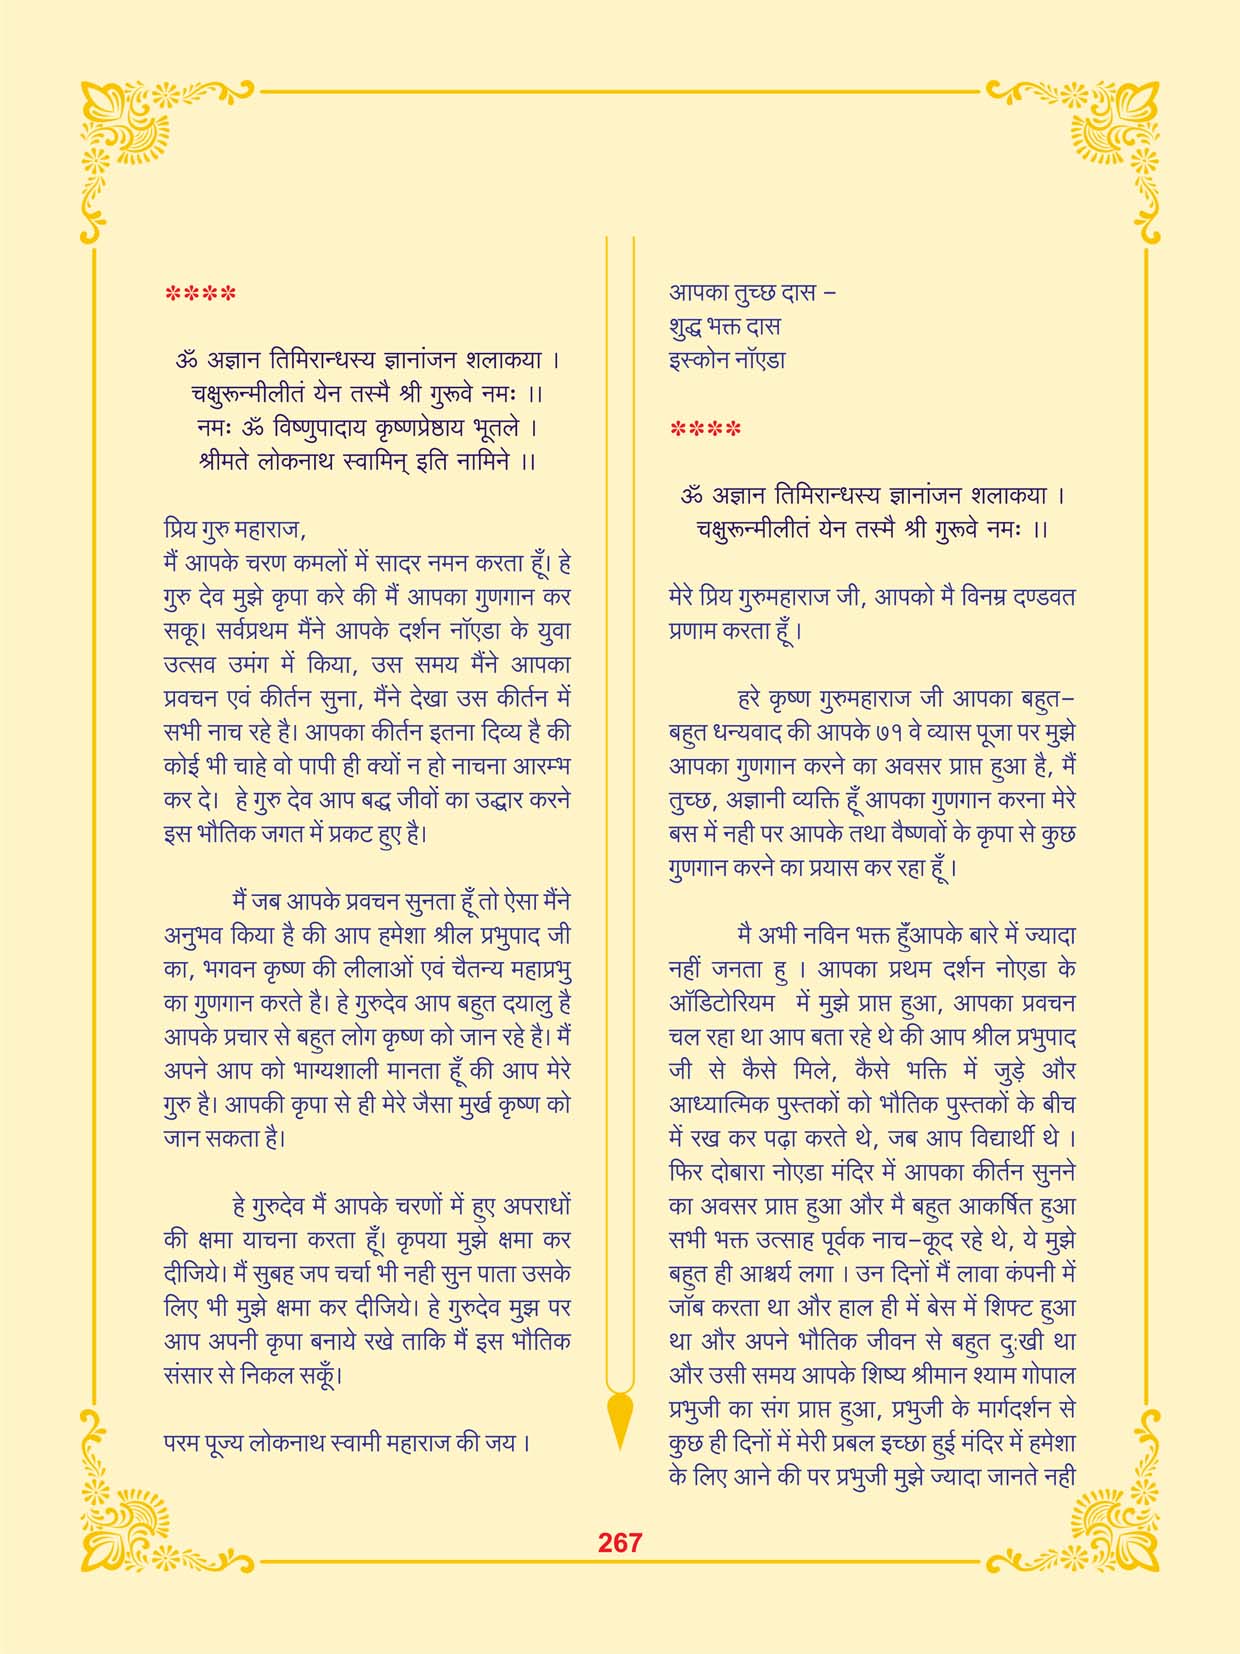 ****
ॐ अज्ञान तिमिरान्धस्य ज्ञानांजन शलाकया ।
चक्षुरून्मीलीतं येन तस्मै श्री गुरूवे नमः ।।
नमः ॐ विष्णुपादाय कृष्णप्रेष्ठाय भूतले ।
श्रीमते लोकनाथ स्वामिन् इति नामिने ।।
प्रिय गुरु महाराज,
मैं आपके चरण कमलों में सादर नमन करता हूँ। हे
गुरु देव मुझे कृपा करे की मैं आपका गुणगान कर
सकू। सर्वप्रथम मैंने आपके दर्शन नॉएडा के युवा
उत्सव उमंग में किया, उस समय मैंने आपका
प्रवचन एवं कीर्तन सुना, मैंने देखा उस कीर्तन में
सभी नाच रहे है। आपका कीर्तन इतना दिव्य है की
कोई भी चाहे वो पापी ही क्यों न हो नाचना आरम्भ
कर दे। हे गुरु देव आप बद्ध जीवों का उद्धार करने
इस भौतिक जगत में प्रकट हुए है।
मैं जब आपके प्रवचन सुनता हूँ तो ऐसा मैंने
अनुभव किया है की आप हमेशा श्रील प्रभुपाद जी
का, भगवन कृष्ण की लीलाओं एवं चैतन्य महाप्रभु
का गुणगान करते है। हे गुरुदेव आप बहुत दयालु है
आपके प्रचार से बहुत लोग कृष्ण को जान रहे है। मैं
अपने आप को भाग्यशाली मानता हूँ की आप मेरे
गुरु है। आपकी कृपा से ही मेरे जैसा मुर्ख कृष्ण को
जान सकता है।
हे गुरुदेव मैं आपके चरणों में हुए अपराधों
की क्षमा याचना करता हूँ। कृपया मुझे क्षमा कर
दीजिये। मैं सुबह जप चर्चा भी नही सुन पाता उसके
लिए भी मुझे क्षमा कर दीजिये। हे गुरुदेव मुझ पर
आप अपनी कृपा बनाये रखे ताकि मैं इस भौतिक
संसार से निकल सकूँ।
परम पूज्य लोकनाथ स्वामी महाराज की जय ।
आपका तुच्छ दास –
शुद्ध भक्त दास
इस्कोन नॉएडा
****
ॐ अज्ञान तिमिरान्धस्य ज्ञानांजन शलाकया ।
चक्षुरून्मीलीतं येन तस्मै श्री गुरूवे नमः ।।
मेरे प्रिय गुरुमहाराज जी, आपको मै विनम्र दण्डवत
प्रणाम करता हूँ ।
हरे कृष्ण गुरुमहाराज जी आपका बहुत–
बहुत धन्यवाद की आपके ७१ वे व्यास पूजा पर मुझे
आपका गुणगान करने का अवसर प्राप्त हुआ है, मैं
तुच्छ, अज्ञानी व्यक्ति हूँ आपका गुणगान करना मेरे
बस में नही पर आपके तथा वैष्णवों के कृपा से कुछ
गुणगान करने का प्रयास कर रहा हूँ ।
मै अभी नविन भक्त हुँआपके बारे में ज्यादा
नहीं जनता हु । आपका प्रथम दर्शन नोएडा के
ऑडिटोरियम में मुझे प्राप्त हुआ, आपका प्रवचन
चल रहा था आप बता रहे थे की आप श्रील प्रभुपाद
जी से कैसे मिले, कैसे भक्ति में जुड़े और
आध्यात्मिक पुस्तकों को भौतिक पुस्तकों के बीच
में रख कर पढ़ा करते थे, जब आप विद्यार्थी थे ।
फिर दोबारा नोएडा मंदिर में आपका कीर्तन सुनने
का अवसर प्राप्त हुआ और मै बहुत आकर्षित हुआ
सभी भक्त उत्साह पूर्वक नाच–कूद रहे थे, ये मुझे
बहुत ही आश्चर्य लगा । उन दिनों मैं लावा कंपनी में
जॉब करता था और हाल ही में बेस में शिफ्ट हुआ
था और अपने भौतिक जीवन से बहुत दुःखी था
और उसी समय आपके शिष्य श्रीमान श्याम गोपाल
प्रभुजी का संग प्राप्त हुआ, प्रभुजी के मार्गदर्शन से
कुछ ही दिनों में मेरी प्रबल इच्छा हुई मंदिर में हमेशा
के लिए आने की पर प्रभुजी मुझे ज्यादा जानते नही
267